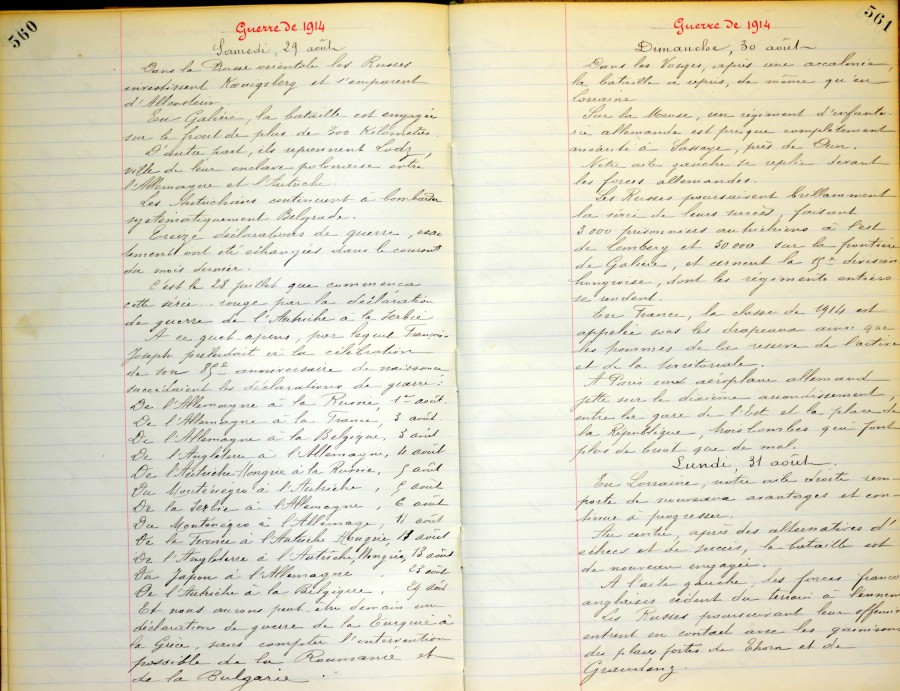 560
Guerre de 1914
Samedi, 29 août
Dans la Prusse orientale les Russes
investissent Kœnigsberg et s'emparent
d'Allenstein.
En Galicie, la bataille est engagée
sur le front de plus de 300 Kilomètres.
D'autre part, ils reprennent Lodz,
ville de leur enclave polonaise entre
l'Allemagne et l'Autriche.
Les Autrichiens continuent à bombarder
systématiquement Belgrade.
Treize déclarations de guerre, exac
tement ont été échangées dans le courant
du mois dernier.
C'est le 28 juillet que commença
cette série rouge par la déclaration
de guerre de l'Autriche à la Serbie
A ce guet apens, par lequel François-
Joseph préludait à la célébration
de son 85me anniversaire de naissance
succédaient les déclarations de guerre:
De l'Allemagne à la Russie, 1er août
De l'Allemagne à la France, 3 août
De l'Allemagne à la Belgique, 3 août
De l'Angleterre à l'Allemagne, 4 août
De l'Autriche Hongrie à la Russie, 5 août
Du Monténégro à l'Autriche, 5 août
De la Serbie à l'Allemagne, 6 août
Du Monténégro à l'Allemage, 11 août
De la France à l'Autriche Hongrie, 11 août
De l'Angleterre à l'Autriche, Hongrie, 13 août
Du Japon à l'Allemagne, 23 août
De l'Autriche à la Belgique, 29 août
Et nous aurons peut être demain une
déclaration de guerre de la Turquie à
la Grèce, sans compter l'intervention
possible de la Roumanie et
de la Bulgarie..
561
Guerre de 1914
Dimanche, 30 août
Dans les Vosges, après une accalmie,
la bataille a repris, de même qu'en
Lorraine
Sur la Meuse, un régiment d'infante-
rie allemande est presque complètement
anéanti à Sassaye, près de Dun.
Notre aile gauche se replie devant
les forces allemandes.
Les Russes poursuivent brillamment
la série de leurs succès, faisant
3 000 prisonniers autrichiens à l'est
de Lemberg et 30 000 sur la frontière
de Galicie, et cernent la division
hongroise, dont les régiments entiers
se rendent.
En France, la classe de 1914 est
appelée sous les drapeaux ainsi que
les hommes de la reserve de l'active
et de la territoriale.
A Paris un aéroplane allemand
jette sur le dixième arrondissement,
entre la gare de l'Est et la place de
la République, trois bombes qui font
plus de bruit que de mal.
Lundi, 31 août
En Lorraine, notre aile droite rem-
porte de nouveaux avantages et con-
tinue à progresser.
Au centre, après des alternatives d'
échecs et de succès, la bataille est
de nouveau engagée.
A l'aile gauche, les forces franco
anglaises cèdent du terrain à l'ennemi
Les Russes poursuivant leur offensive
entrent en contact avec les garnisons
des places fortes de Thorn et de
Graudenz